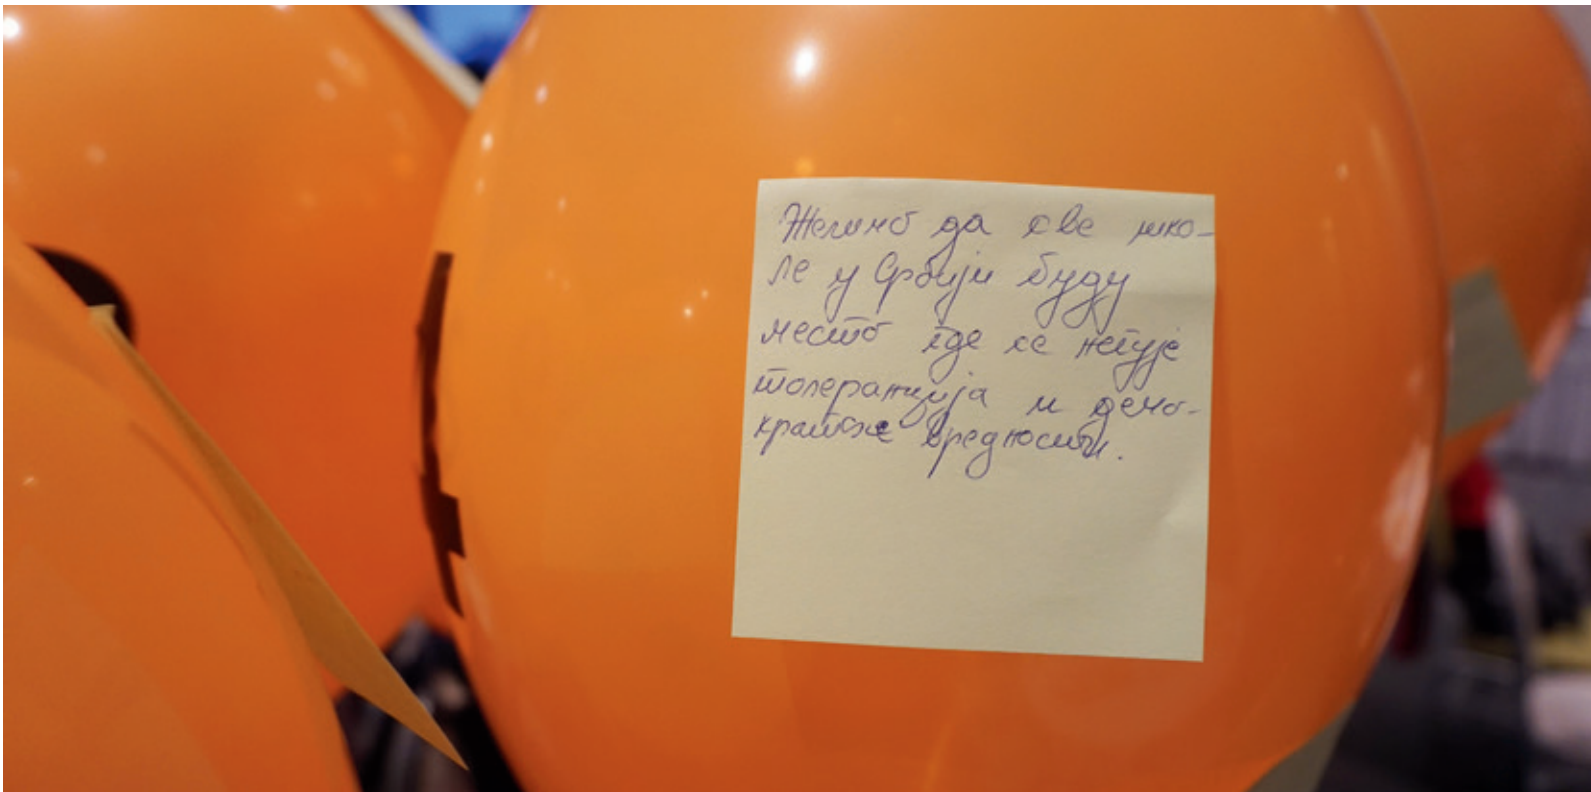 Желимо да све шко-
ле у Србији буду
место где се негује
толеранција и демо-
кратске вредности.